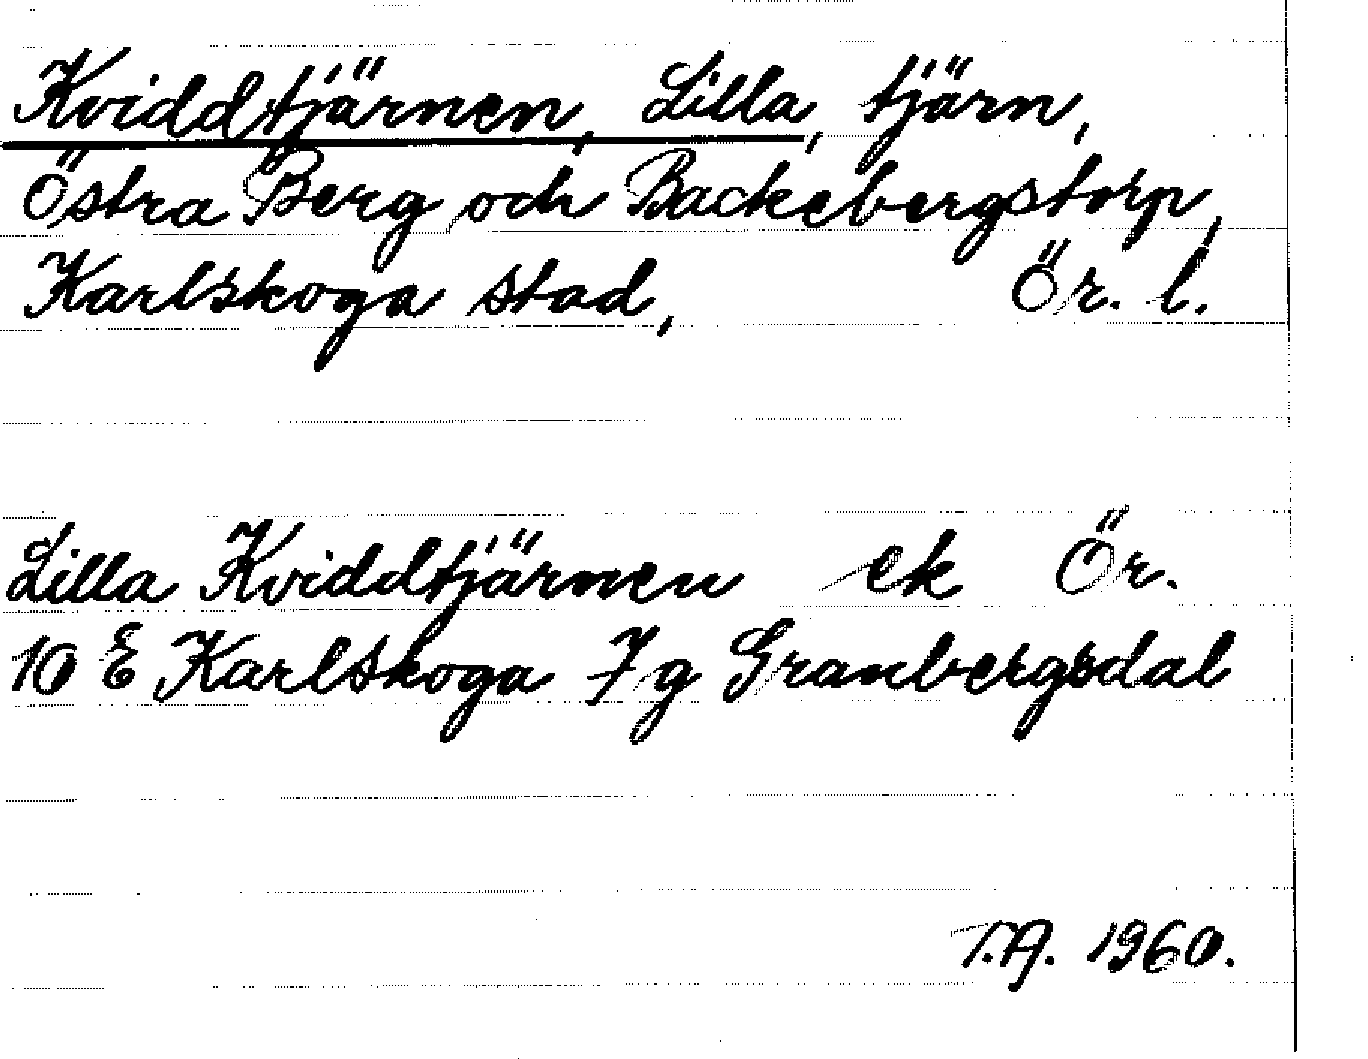 Kviddtjärnen, Lilla, tjärn,
Östra Berg och Backebergstorp,
Karlskoga stad, Ör. l.
Lilla Kviddtjärnen ek Ör.
10 E Karlskoga 7 g Granbergsdal
T.A. 1960.